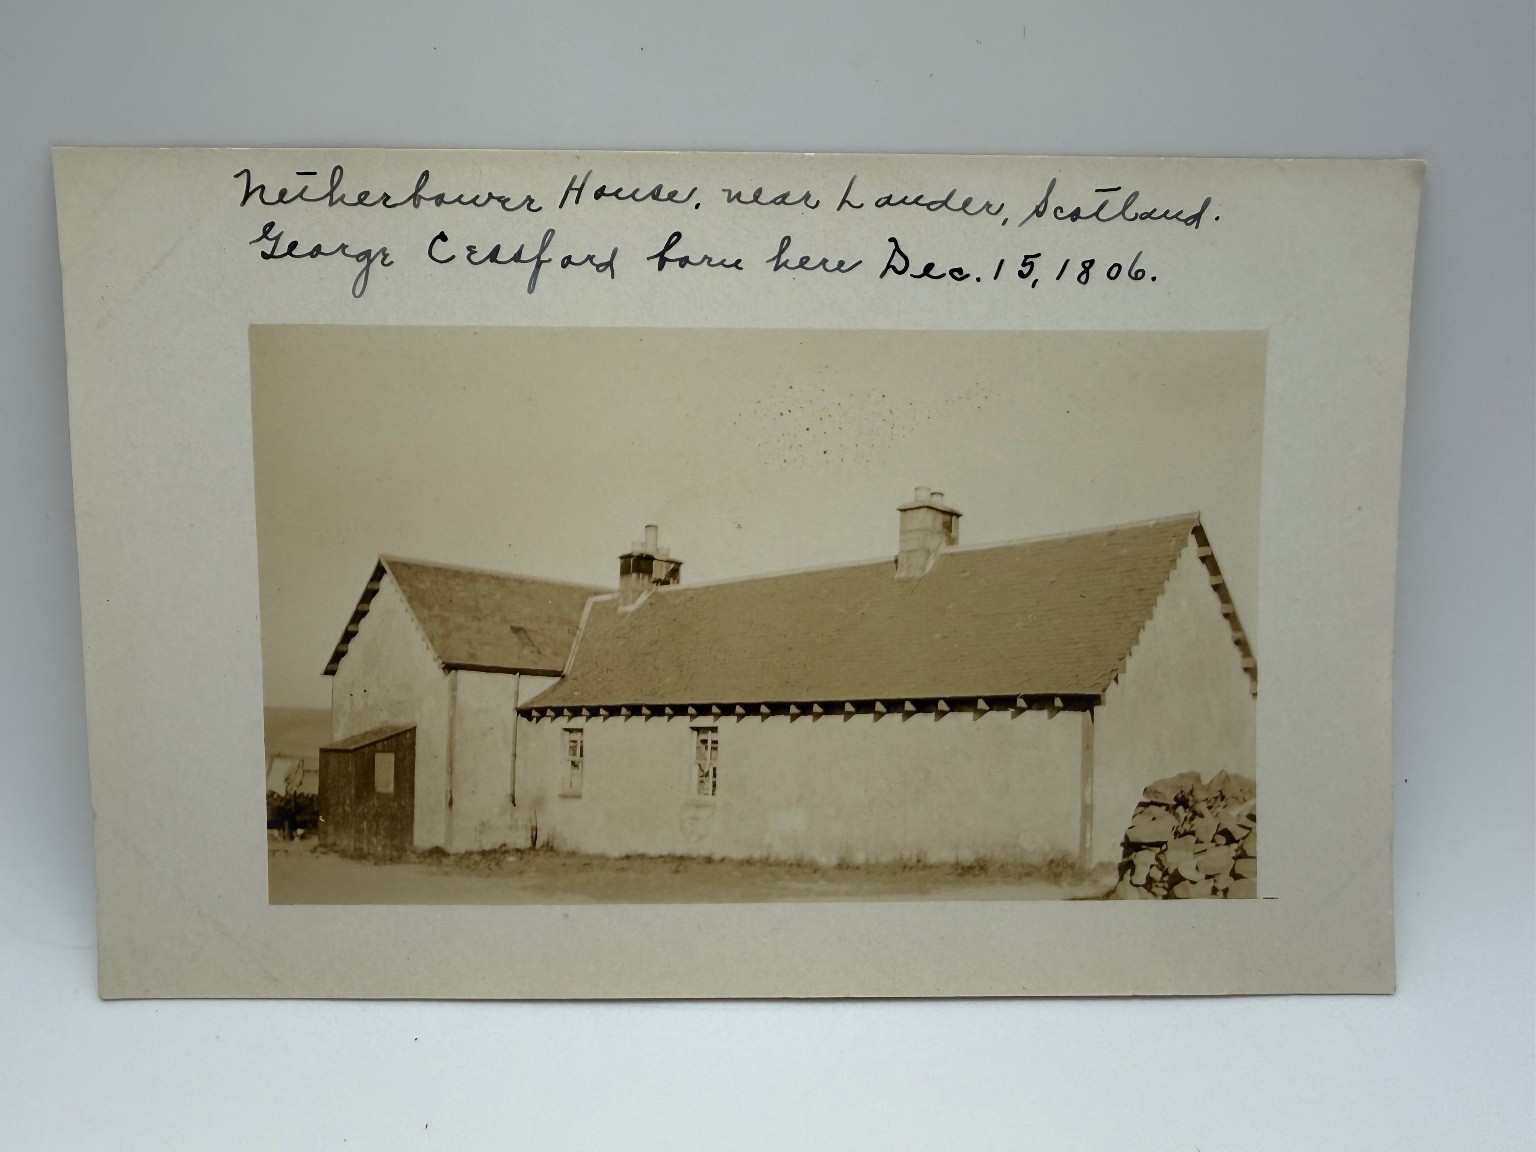 Netherbower House, near Lauder, Scotland.
George Cessford born here Dec. 15, 1806.